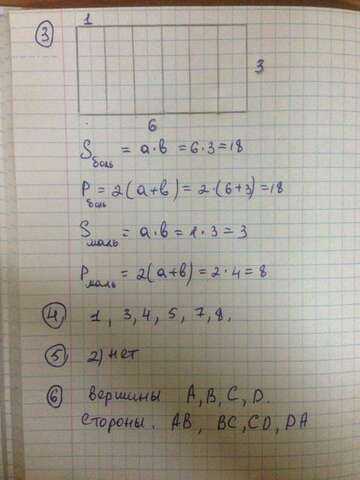 3
1
3
6
Sболь = a·в = 6·3=18
Pболь = 2(a+в) = 2·(6+3)=18
Sмаль = a·в = 1·3 = 3
Pмаль = 2(a+в) = 2·4 = 8
4, 1, 3, 4, 5, 7, 8.
5, 2) нет
6 вершины A, B, C, D.
стороны. AB, BC, CD, DA